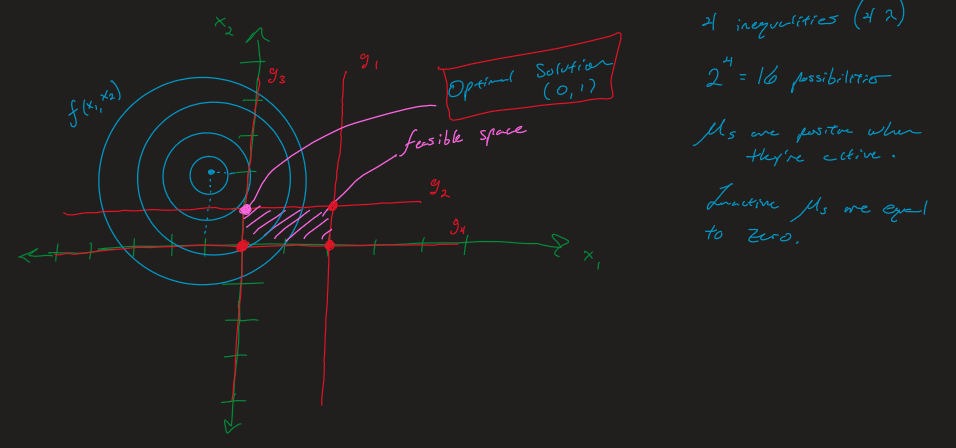 x₂
g₃
g₁
f(x₁, x₂)
Optimal Solution
(0, 1)
feasible space
g₂
g₄
x₁
4 inequalities (4 λ)
2⁴ = 16 possibilities
μs are positive when
they're active.
Inactive μs are equal
to zero.